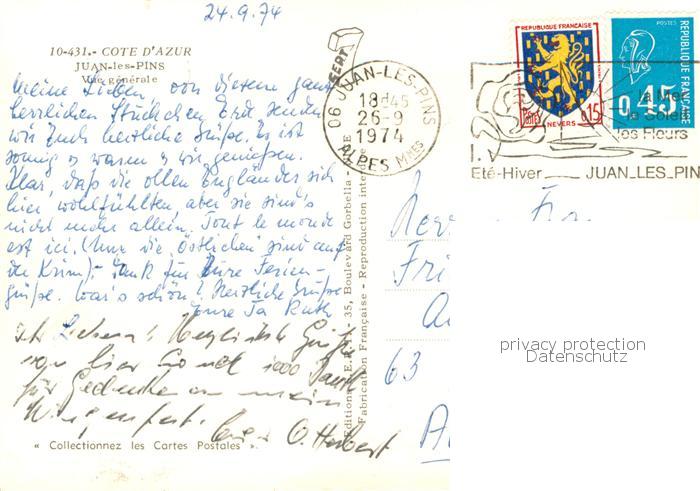 24.9.74
10-431.- COTE D'AZUR
JUAN-les-PINS
Vue générale
Meine Lieben, von diesem ganz
herrlichen Stückchen Erd senden
wir Euch herzliche Grüße. Es ist
sonnig & warm & wir genießen.
Klar, daß die ollen Engländer sich
hier wohlfühlten aber sie sind's
nicht mehr allein. Tout le monde
est ici. (Nur die Östlichen sind auf
der Krim). Dank für Eure Ferien-
grüße. War's schön? Herzliche Grüße
Eure Ruth
Ihr Lieben! Herzliche Grüße
von hier und 1000 Dank
für Gedenken an meinen
O. Herbert
« Collectionnez les Cartes Postales ».
Editions - 35, Boulevard Gorbella -
Fabrication Française - Reproduction
06 JUAN-LES-PINS
18H45
26-9
1974
ALPES Mmes
REPUBLIQUE FRANÇAISE
POSTES
NEVERS
0,15
POSTES
REPUBLIQUE FRANÇAISE
0,45
la Mer
le Soleil
les Fleurs
Eté-Hiver JUAN_LES_PIN
Fri
63
privacy protection
Datenschutz